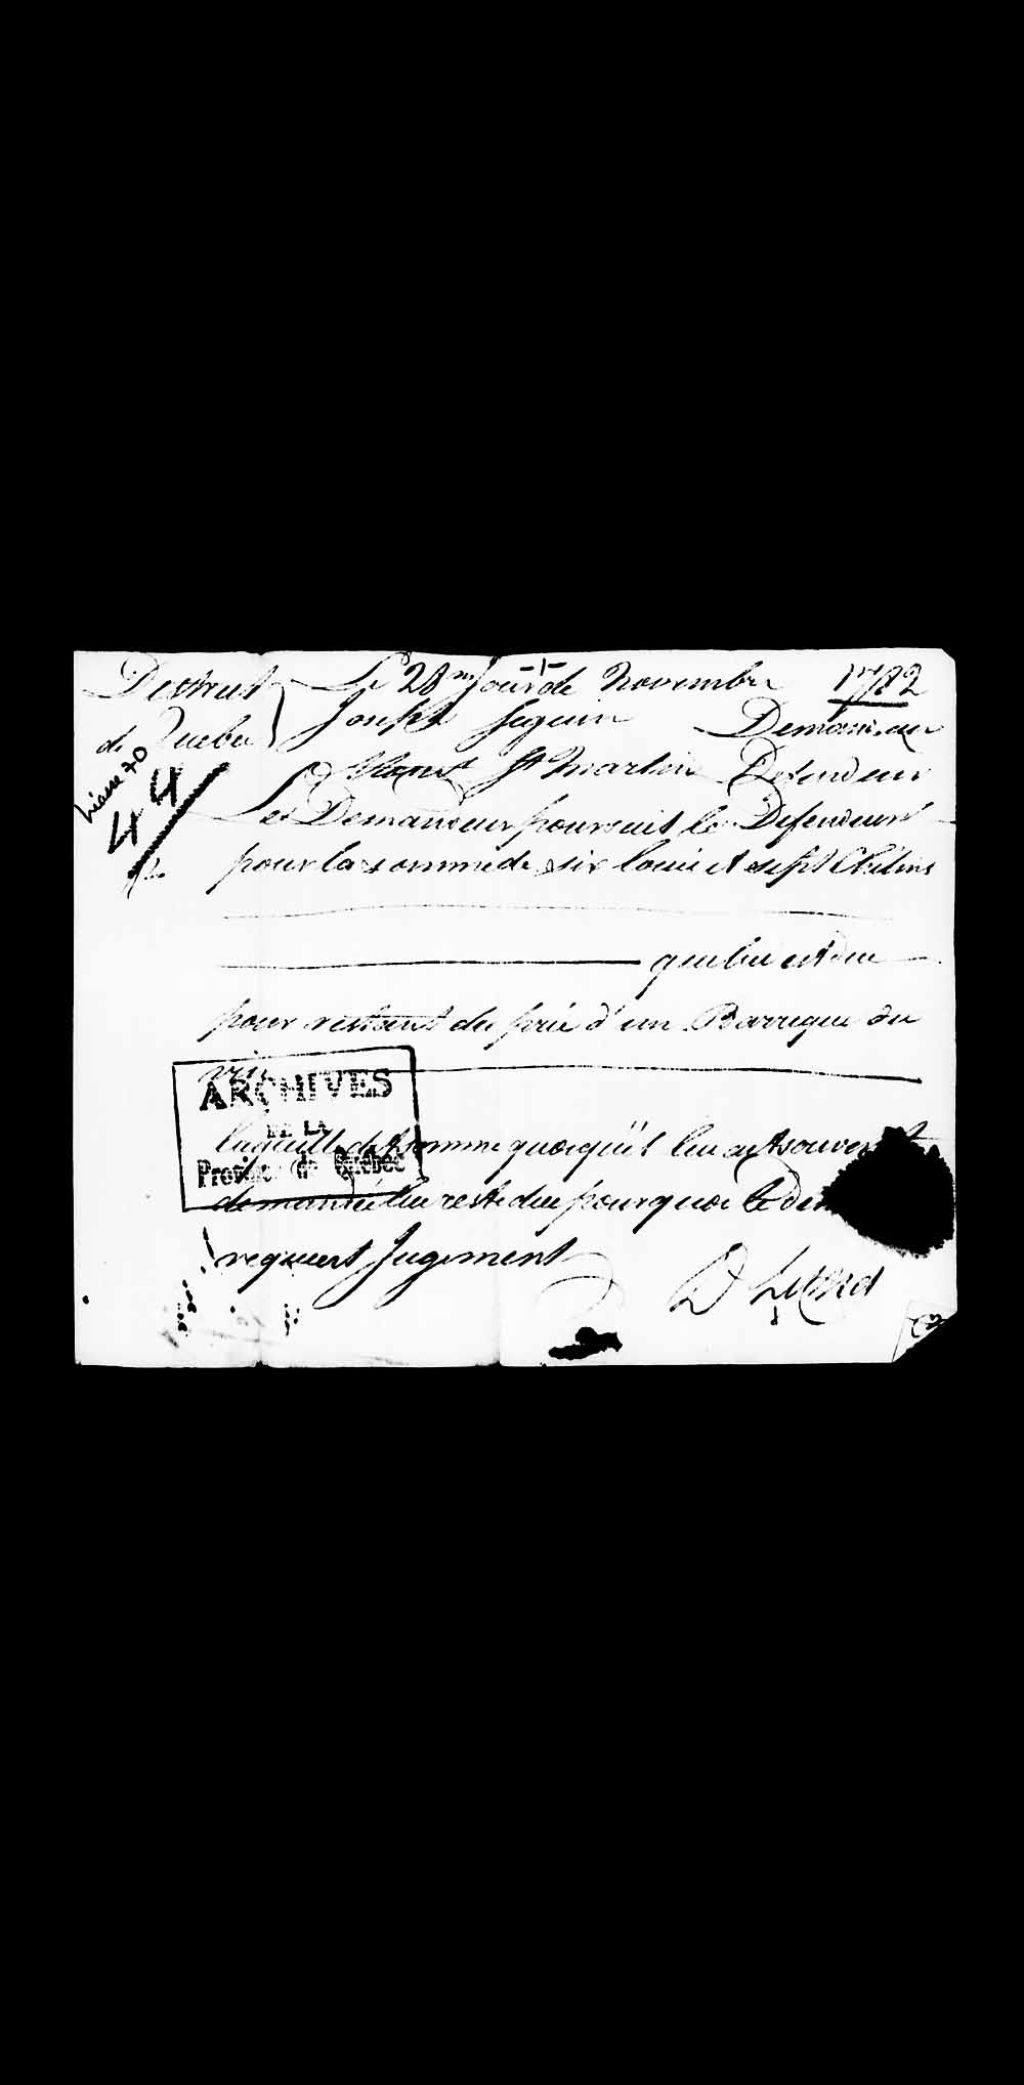 District Le 28me Jour de Novembre 1782
de Quebec Joseph Seguin Demandeur
St Martin Defendeur
Liasse 70
44
Le Demandeur poursuit le Defendeur
pour la somme de six louis et sept Chelins
que lui est due
pour restant du prix d'un Barrique du
vin
ARCHIVES
DE LA
Province de Québec
laquelle de somme quoiqu'il lui ait souvent
demandée lui reste due pourquoi le dem
requiert Jugement